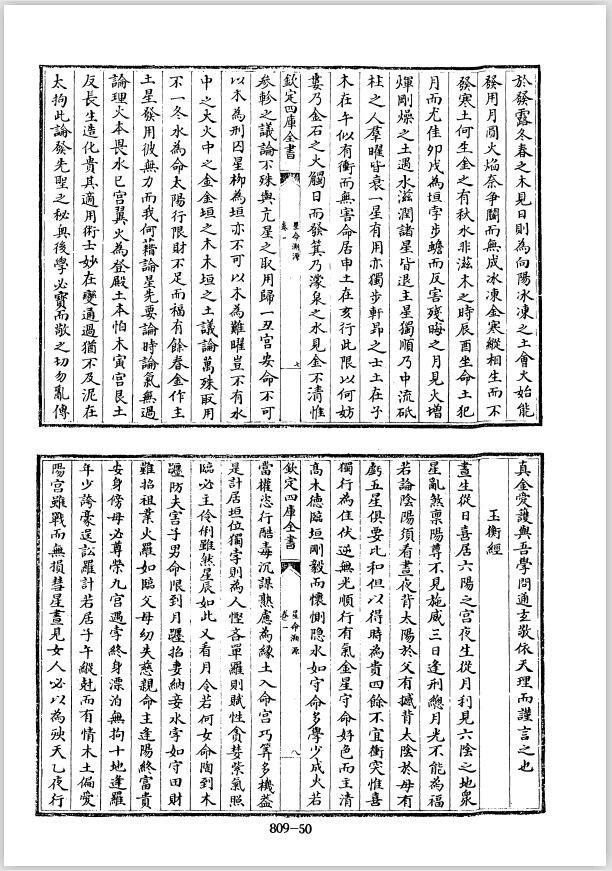 於發露冬春之木見日則為向陽冰凍之土會火始能
發用月囚火焰奈爭鬭而無成冰凍金寒縱相生而不
發寒土何生金之有秋水非滋木之時辰酉坐命土犯
月而尤佳卯戌為垣孛步蟾而反害殘晦之月見火増
煇剛燥之土遇水滋潤諸星皆退主星獨順乃中流砥
柱之人羣曜皆衰一星有用亦獨步軒昂之士土在子
木在午似有衝而無害命居申土在亥行此限以何妨
婁乃金石之火觸日而發箕乃濛泉之水見金不清惟
欽定四庫全書
星命溯源
卷一
七
參軫之議論不殊與亢星之取用歸一丑宫安命不可
以木為刑囚星柳為垣亦不可以木為難曜豈不有水
中之火火中之金金垣之木木垣之土議論萬殊取用
不一冬水為命太陽行限財不足而福有餘春金作主
土星發用彼無力而我何藉論星先要論時論氣無過
論理火本畏水巳宫翼火為登殿土本怕木寅宫艮土
反長生造化貴其適用術士妙在變通過猶不及泥在
太拘此論發先聖之秘奥後學必寳而敬之切勿亂傳
真金愛護與吾學問通玄敬依天理而謹言之也
玉衡經
晝生從日喜居六陽之宫夜生從月利見六陰之地衆
星亂煞稟陽尊不見施威三日逢刑總月光不能為福
若論陰陽須看晝夜背太陽於父有撼背太陰於母有
虧五星俱要比和但以得時為貴四餘不宜衝突惟喜
獨行為佳伏逆無光順行有氣金星守命好色而主清
高木德臨垣剛毅而懷惻隠水如守命多學少成火若
欽定四庫全書
星命溯源
卷一
八
當權恣行酷毒沉謀熟慮為緣土入命宫巧算多機葢
是計居垣位獨孛則為人慳吝單羅則賦性貪婪紫氣照
臨必主伶俐雖然星辰如此又看月令若何女命陶到木
躔防夫害子男命限到月躔招妻納妾水孛如守田財
難招祖業火羅如臨父母幼失慈親命主逢陽終富貴
安身傍母必尊榮九宫遇孛終身漂泊無拘十地逢羅
年少誇豪逞訟羅計若居子午縱尅而有情木土偏愛
陽宫雖戰而無損彗星晝見女人必以為殃天乙夜行
809—50